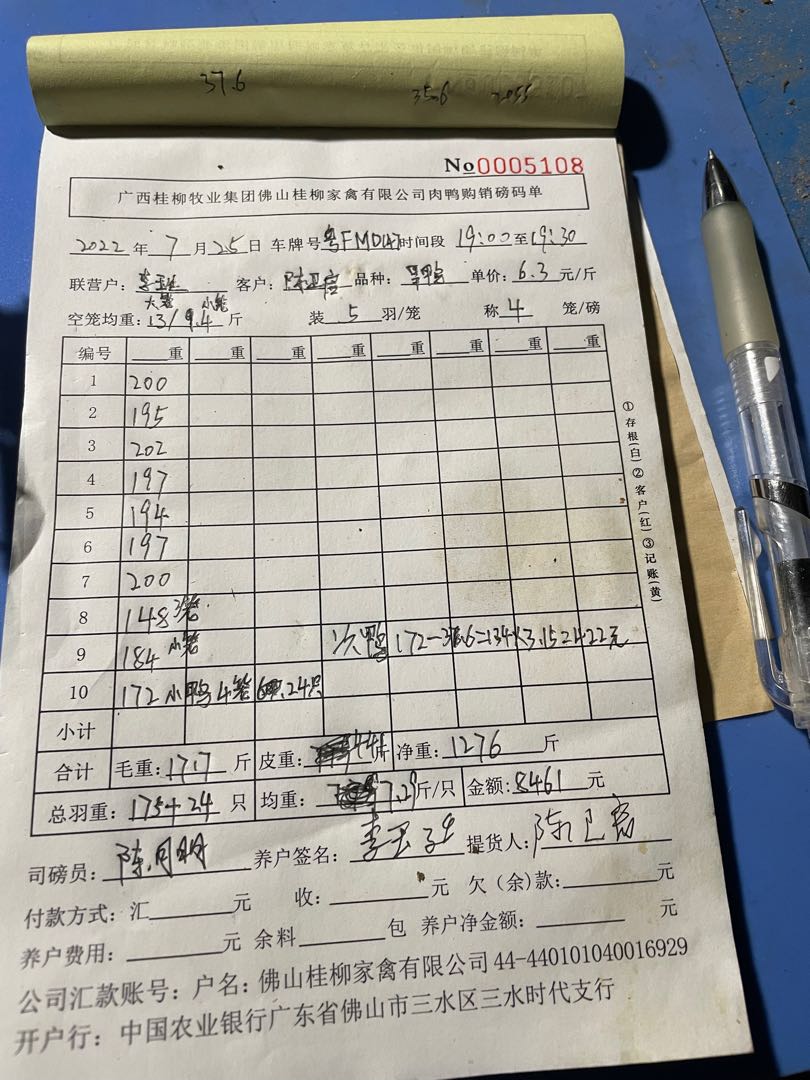 37.6 35.6 2055
No 0005108
广西桂柳牧业集团佛山桂柳家禽有限公司肉鸭购销磅码单
2022 年 7 月 25 日 车牌号 粤FMD 时间段 19:00 至 19:30
联营户: 客户: 品种: 单价: 6.3 元/斤
大笼 小笼
空笼均重: 13/9.4 斤 装 5 羽/笼 称 4 笼/磅
编号 重 重 重 重 重 重 重
1 200
2 195
3 202
4 197
5 194
6 197
7 200
8 148 3笼
9 184 小笼 次鸭 172-37.6=134×3.15=422元
10 172 小鸭4笼 24只
小计
合计 毛重: 1717 斤 皮重: 441 斤 净重: 1276 斤
总羽重: 175+24 只 均重: 7.29 斤/只 金额: 8461 元
司磅员: 陈月明 养户签名: 提货人:
付款方式: 汇 元 收: 元 欠(余)款: 元
养户费用: 元 余料 包 养户净金额: 元
公司汇款账号: 户名: 佛山桂柳家禽有限公司 44-440101040016929
开户行: 中国农业银行广东省佛山市三水区三水时代支行
①存根(白)②客户(红)③记账(黄)